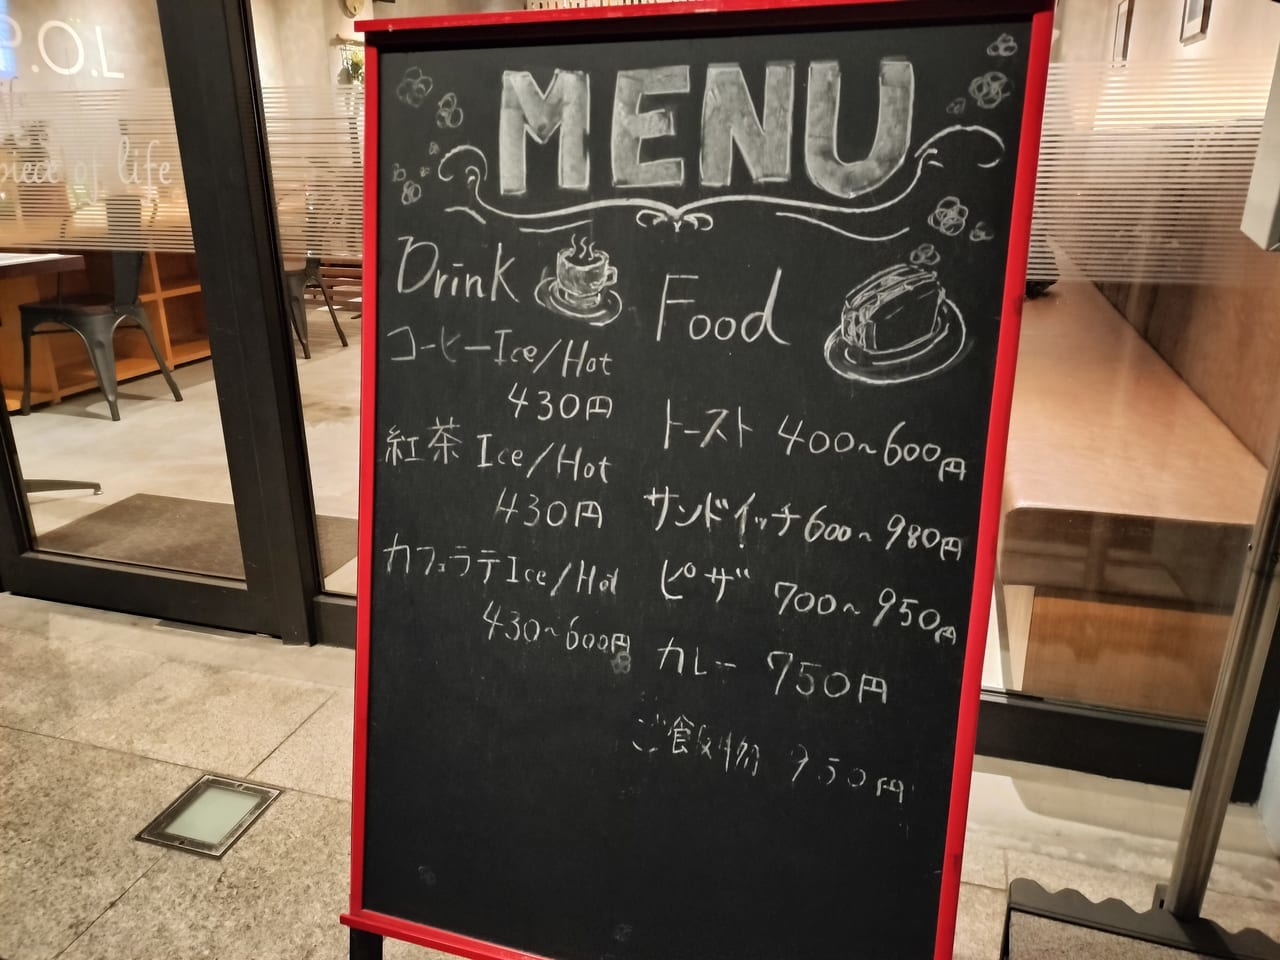 P.O.L
life
piece of life
MENU
Drink
コーヒーIce/Hot
430円
紅茶 Ice/Hot
430円
カフェラテIce/Hot
430~600円
Food
トースト 400~600円
サンドイッチ600~980円
ピザ 700~950円
カレー 750円
950円